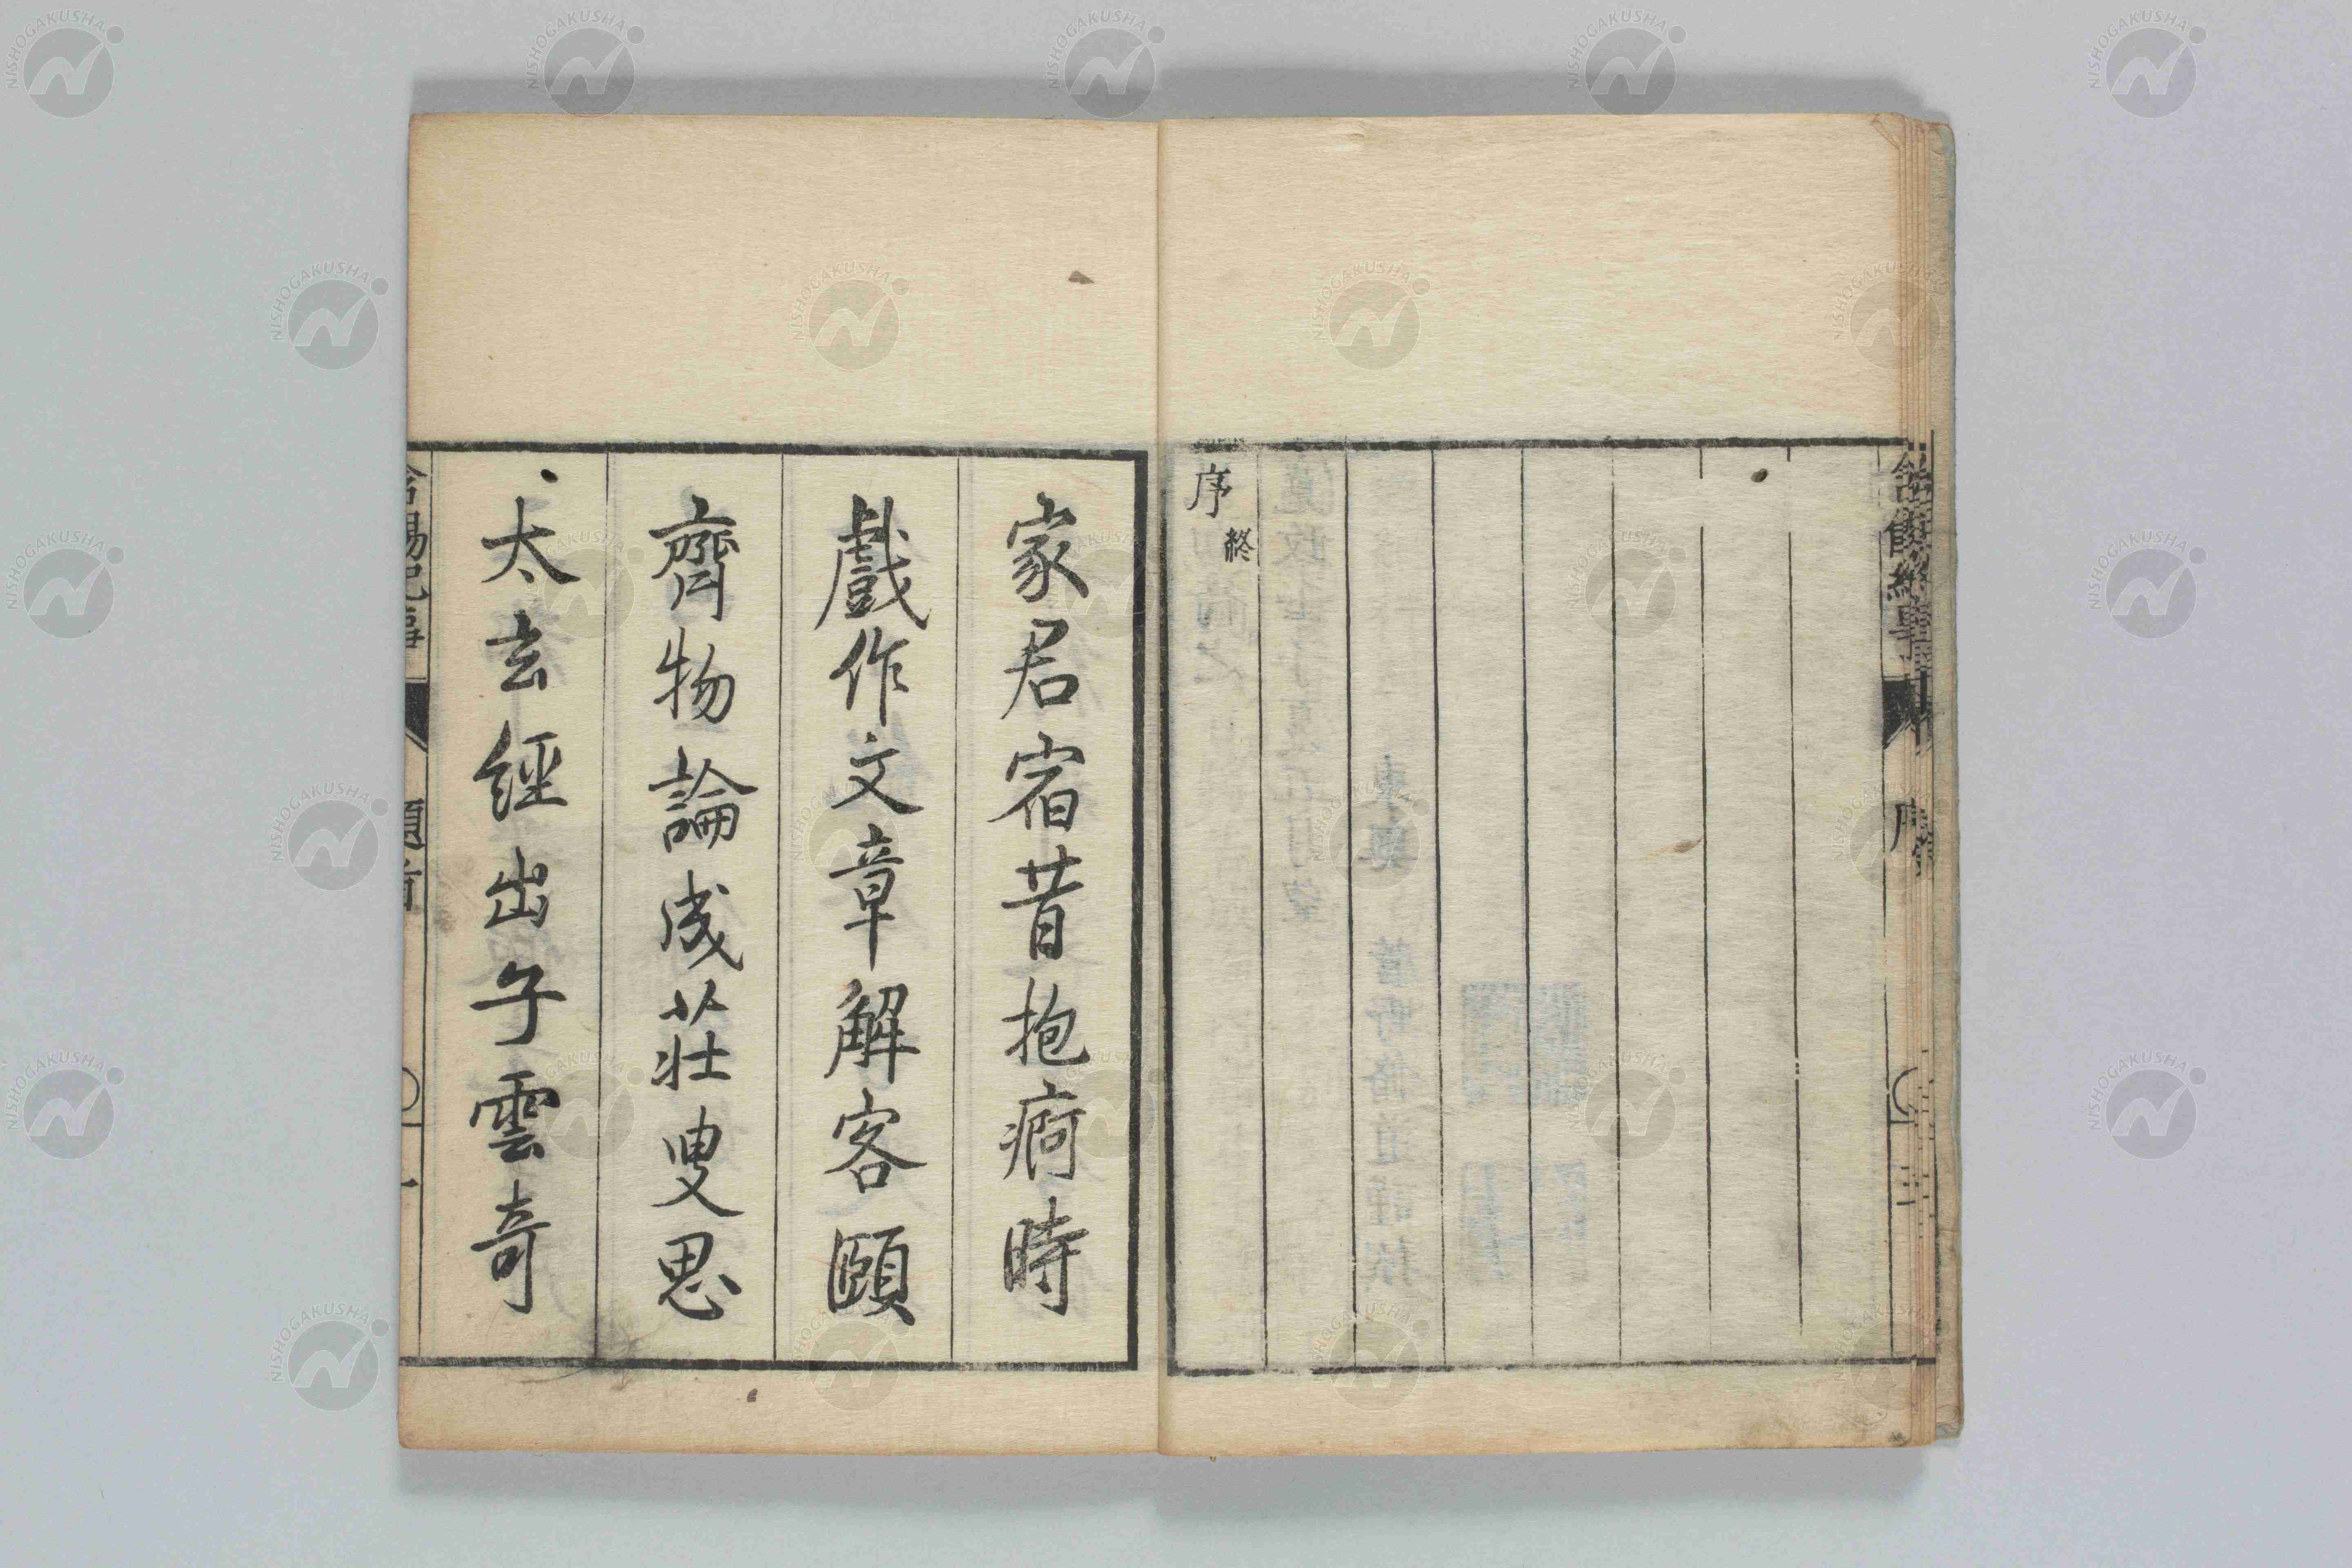 序終
家君宿昔抱痾時
戲作文章解客頤
齊物論成莊叟思
太玄經出子雲奇
NISHOGAKUSHA